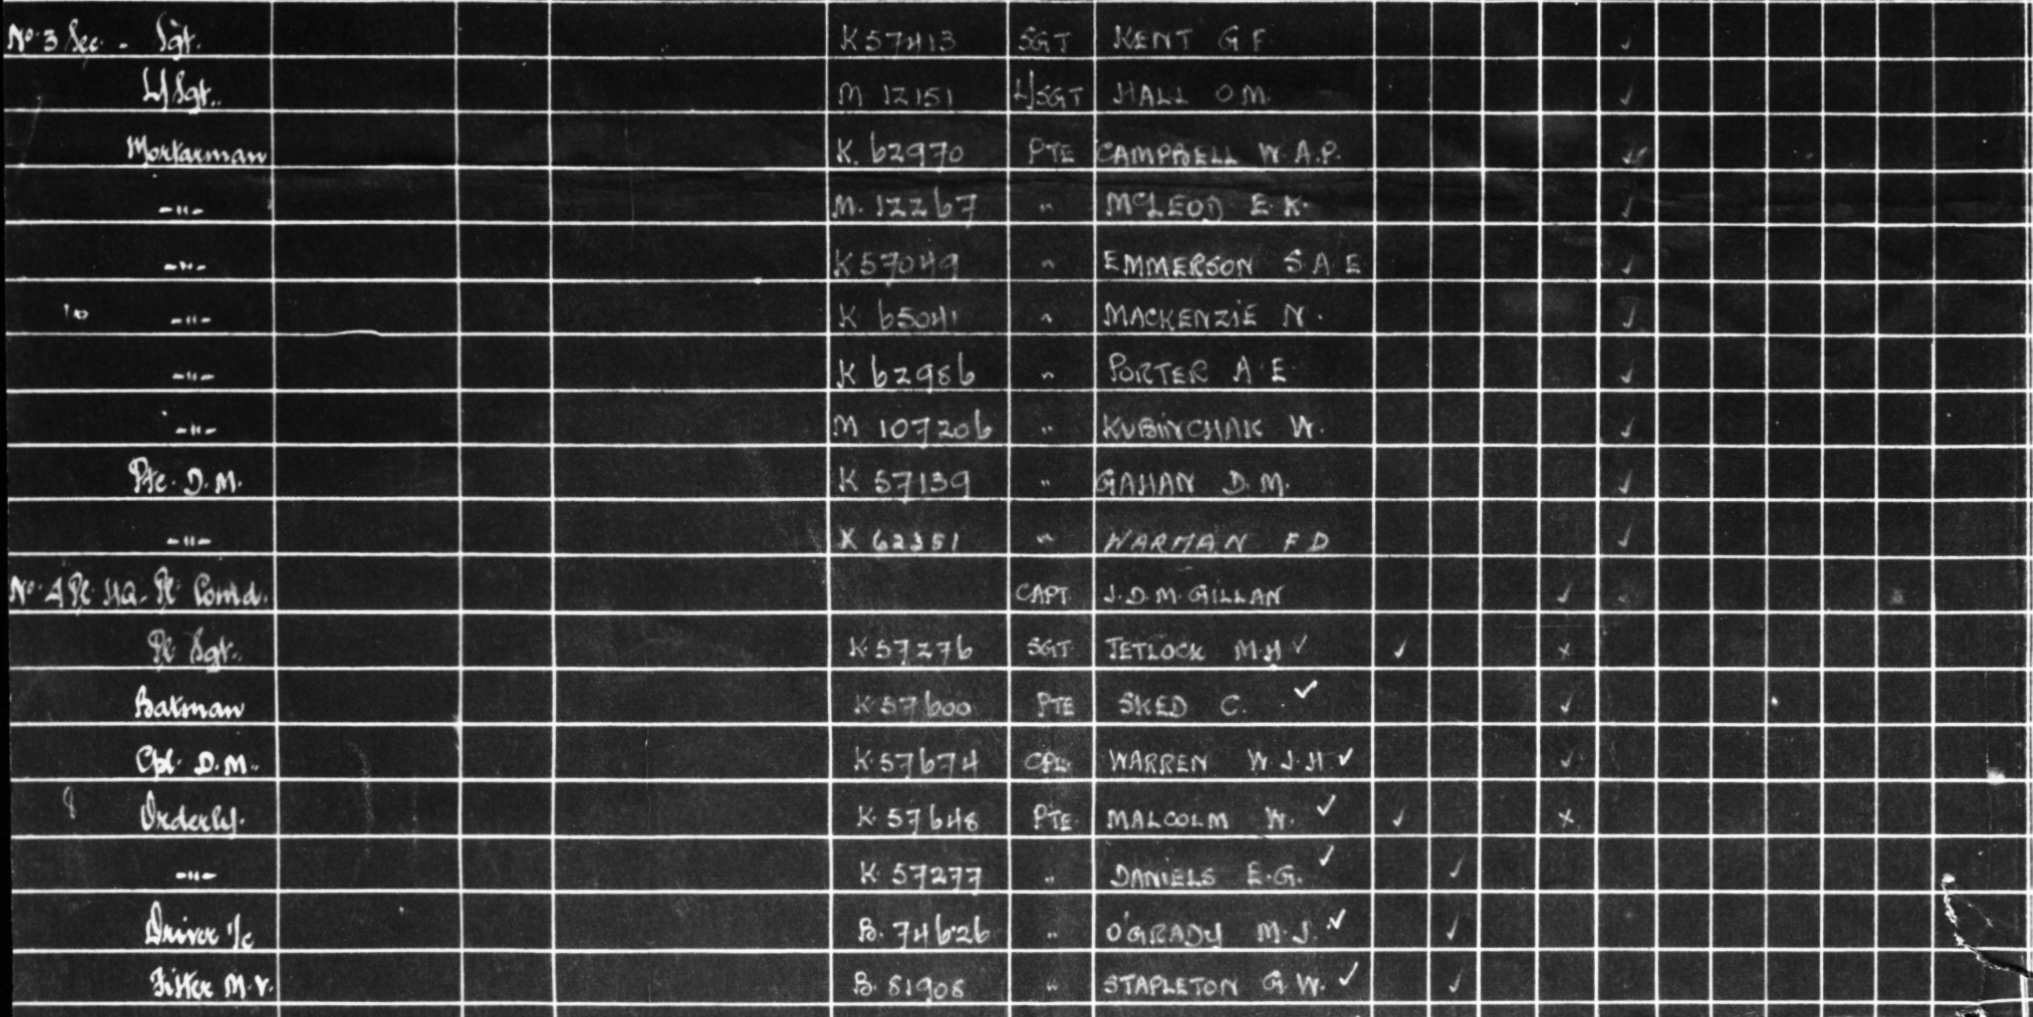 No. 3 Sec. - Sgt. K 57413 SGT KENT G F ✓
L/Sgt. M 12151 L/SGT HALL O M. ✓
Mortarman K. 62970 PTE CAMPBELL W. A. P. ✓
-"- M. 12267 " McLEOD E. K. ✓
-"- K 57049 " EMMERSON S A E ✓
10 -"- K 65041 " MACKENZIE N. ✓
-"- K 62986 " PORTER A E ✓
-"- M 107206 " KUBINCHAK W. ✓
Pte. D.M. K 57139 " GAHAN D. M. ✓
-"- K 62351 " WARMAN F D ✓
No. 4 Pl. HQ - Pl. Comd. CAPT. J. D. M. GILLAN ✓
Pl Sgt. K. 57276 SGT. TETLOCK M. H ✓ ✓ x
Batman K. 57600 PTE SKED C. ✓ ✓
Cpl. D.M. K. 57674 CPL. WARREN W. J. H ✓ ✓
8 Orderly. K. 57648 PTE. MALCOLM W. ✓ ✓ x
-"- K. 57277 " DANIELS E. G. ✓ ✓
Driver i/c B. 74626 " O'GRADY M. J. ✓ ✓
Fitter M.V. B. 81908 " STAPLETON G. W. ✓ ✓